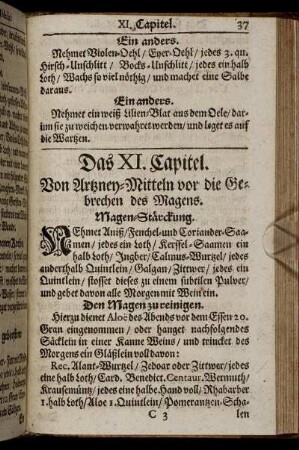 XI. Capitel. 37
Ein anders.
Nehmet Violen-Oehl / Eyer-Oehl / jedes 3. qu.
Hirsch-Unschlitt / Bocks-Unschlitt / jedes ein halb
Loth / Wachs so viel nöthig / und machet eine Salbe
daraus.
Ein anders.
Nehmet ein weiß Lilien/Blat aus dem Oele / dar-
iñ sie zu weichen verwahret werden / und leget es auf
die Wartzen.
Das XI. Capitel.
Von Artzney-Mitteln vor die Ge-
brechen des Magens.
Magen-Stärckung.
NEhmet Aniß / Fenchel-und Coriander-Saa-
men / jedes ein Loth / Kerffel-Saamen ein
halb Loth / Ingber / Calmus-Wurtzel / jedes
anderthalb Quintlein / Galgan / Zittwer / jedes ein
Quintlein / stosset dieses zu einem subtilen Pulver /
und gebet davon alle Morgen mit Wein ein.
Den Magen zu reinigen.
Hierzu dienet Aloë des Abends vor dem Essen 20.
Gran eingenommen / oder hanget nachfolgendes
Säcklein in einer Kanne Weins / und trincket des
Morgens ein Gläßlein voll davon:
Rec. Alant-Wurtzel / Zedoar oder Zittwer / jedes
eine halb Loth / Card. Benedict. Centaur. Wermuth /
Krausemüntz / jedes eine halbe Hand voll / Rhabarber
1. halb Loth / Aloe 1. Quintlein / Pomerantzen-Scha-
C 3 len